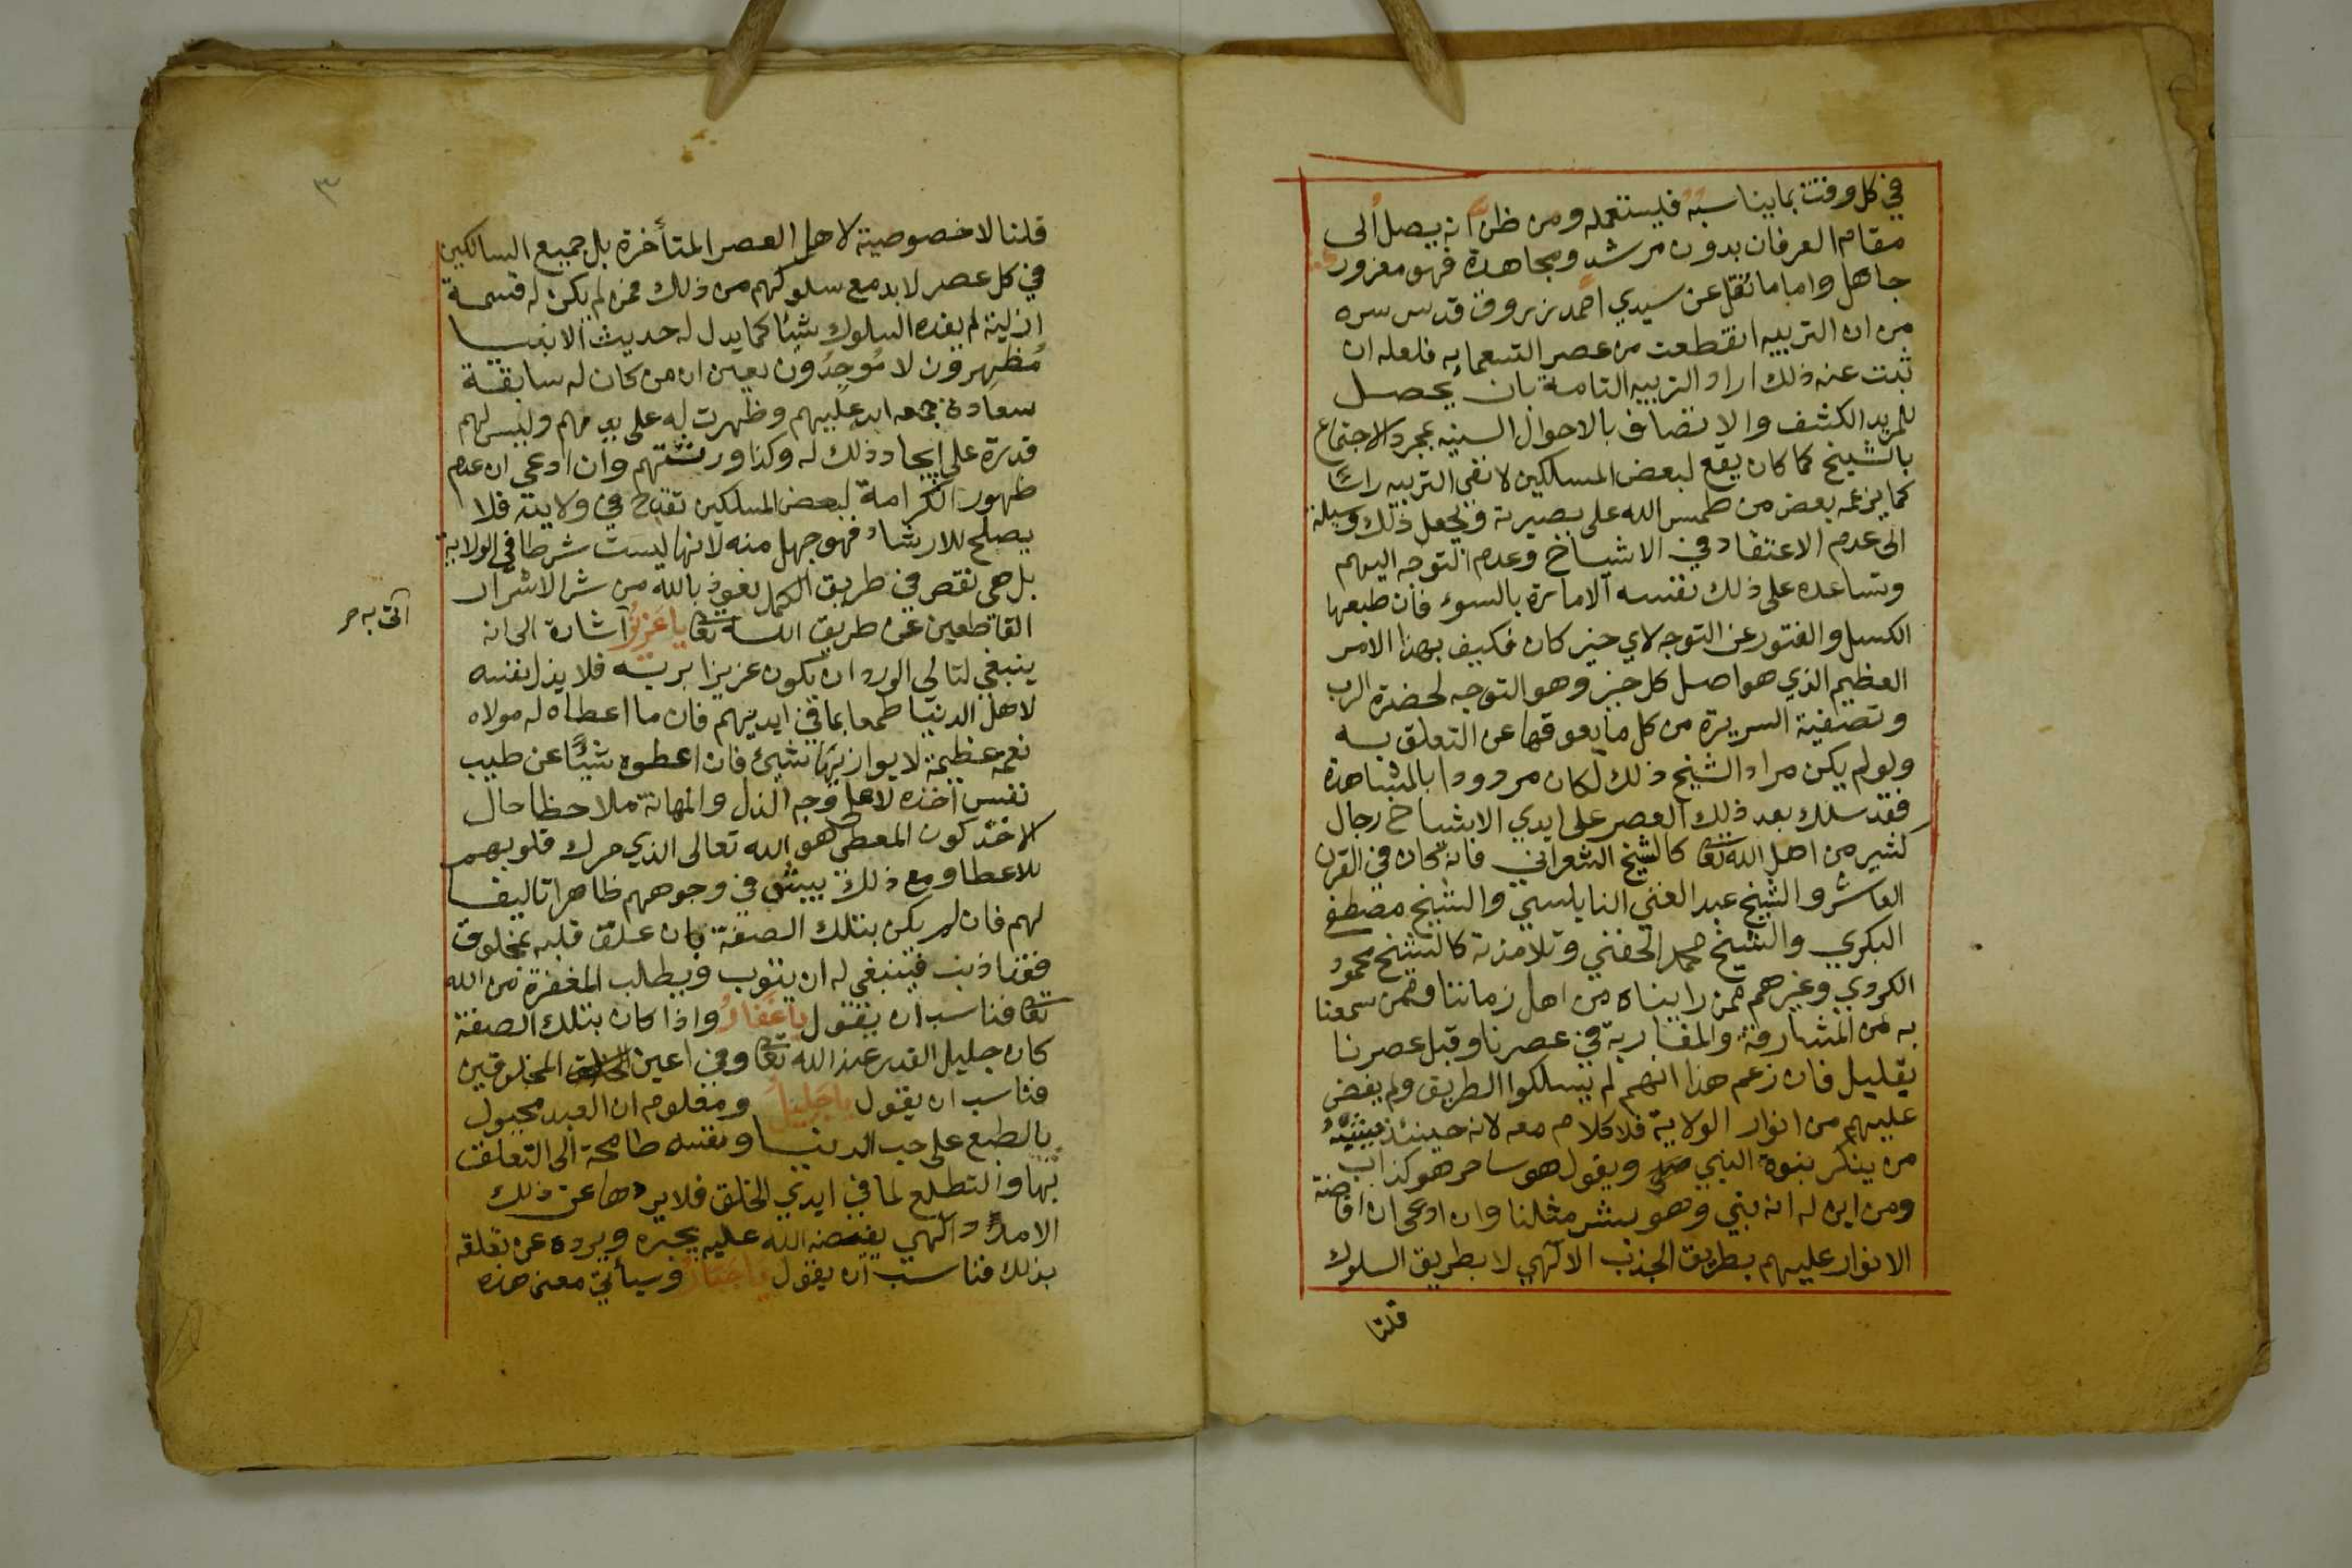 في كل وقت بما يناسبه فليستعمله ومن ظن انه يصل الى
مقام العرفان بدون مرشد ومجاهدة فهو مغرور
جاهل واما ما نقل عن سيدي احمد زروق قدس سره
من ان التربيه انقطعت من عصر التسعمايه فلعله ان
ثبت عنه ذلك اراد التربيه التامة بان يحصل
للمريد الكشف والاتصاف بالاحوال السنيه بمجرد الاجتماع
بالشيخ كما كان يقع لبعض المسلكين لا نفي التربيه راسًا
كما يزعمه بعض من طمس الله على بصيرته ويجعل ذلك وسيلة
الى عدم الاعتقاد في الاشياخ وعدم التوجه اليهم
وتساعده على ذلك نفسه الامارة بالسوء فان طبعها
الكسل والفتور عن التوجه لاي خير كان فكيف بهذا الامر
العظيم الذي هو اصل كل خير وهو التوجه لحضرة الرب
وتصفية السريرة من كل ما يعوقها عن التعلق به
ولو لم يكن مراد الشيخ ذلك لكان مردودا بالمشاهدة
فقد سلك بعد ذلك العصر على ايدي الاشياخ رجال
كثير من اهل الله تعا كالشيخ الشعراني فانه كان في القرن
العاشر والشيخ عبد الغني النابلسي والشيخ مصطفى
البكري والشيخ محمد الحفني وتلامذته كالشيخ محمود
الكردي وغيرهم ممن رايناه من اهل زماننا وممن سمعنا
به من المشارقة والمغاربة في عصرنا وقبل عصرنا
بقليل فان زعم هذا انهم لم يسلكوا الطريق ولم يفض
عليهم من انوار الولاية فلا كلام معه لانه حينئذ
من ينكر بنوة النبي صلى ويقول هو ساحر هو كذاب
ومن اين له انه نبي وهو بشر مثلنا وان ادعى ان افاضة
الانوار عليهم بطريق الجذب الالهي لا بطريق السلوك
قلنا
٣
قلنا لا خصوصية لاهل العصر المتأخرة بل جميع السالكين
في كل عصر لا بد مع سلوكهم من ذلك فمن لم يكن له قسمة
ازلية لم يفده السلوك شيًا كما يدل له حديث الانبيا
مُظهِرون لا مُوجِدُون يعين ان من كان له سابقة
سعادة جمعه ابد عليهم وظهرت له على يديهم وليس لهم
قدرة على ايجاد ذلك له وكذا ورثتهم وان ادعى ان عدم
ظهور الكرامة لبعض المسلكين تقدح في ولايته فلا
يصلح للارشاد فهو جهل منه لانها ليست شرطا في الولاية
بل هي نقص في طريق الكمل نعوذ بالله من شر الاشرار
القاطعين عن طريق الله تعا يا عزيزُ آشارة الى انه
ينبغي لتالي الورد ان يكون عزيزا بربه فلا يذل نفسه
لاهل الدنيا طمعا بما في ايديهم فان ما اعطاه له مولاه
نعمة عظيمة لا يوازيها شيئ فان اعطوه شيئًا عن طيب
نفس أخذه لا على وجه الذل والمهانة ملاحظا حال
الاخذ كون المعطي هو الله تعالى الذي حرك قلوبهم
للاعطا ومع ذلك يبش في وجوههم ظاهرا تاليفا
لهم فان لم يكن بتلك الصفة بان علق قلبه بمخلوق
فقد اذنب فينبغي له ان يتوب ويطلب المغفرة من الله
تعا فناسب ان يقول يا غَفارُ واذا كان بتلك الصفة
كان جليل القدر عند الله تعا وفي اعين المخلوقين
فناسب ان يقول يا جَليلُ ومعلوم ان العبد مجبول
بالطبع على حب الدنيا ونفسه طامحة الى التعلق
بها والتطلع لما في ايدي الخلق فلا يردها عن ذلك
الا مدد آلهي يفيضه الله عليه يجبره ويرده عن تعلقه
بذلك فناسب ان يقول يا جَبّارُ وسيأتي معنى هذه